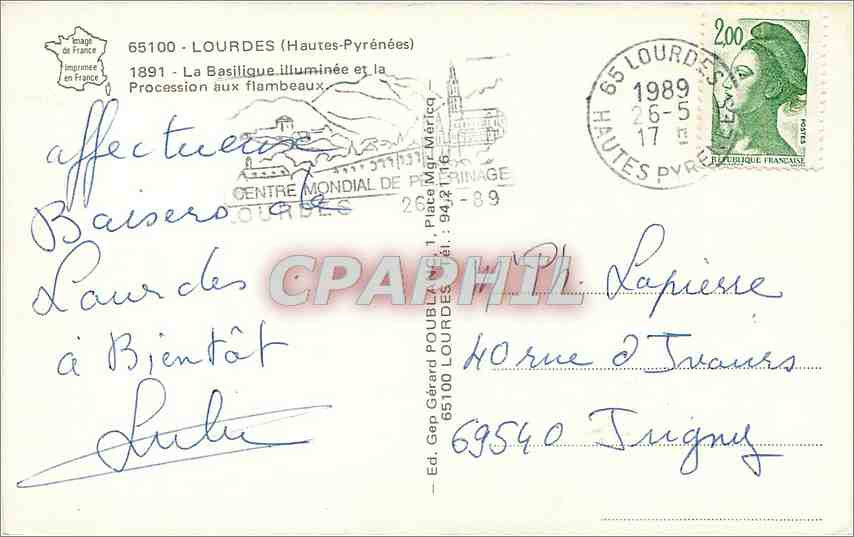 Image
de France
Imprimée
en France
65100 - LOURDES (Hautes-Pyrénées)
1891 - La Basilique illuminée et la
Procession aux flambeaux.
affectueux
Baisers de
Lourdes
à Bientôt
CENTRE MONDIAL DE PELERINAGE
LOURDES 26 -89
65 LOURDES
1989
26-5
17
HAUTES PYRENEES
2,00
POSTES
REPUBLIQUE FRANÇAISE
CPAPHIL
— Ed. Gep Gérard POUBLANC, 1, Place Mgr Méricq —
65100 LOURDES Tél. : 94.21.16
Ph. Lapierre
40 rue d'Ivours
69540 Irigny